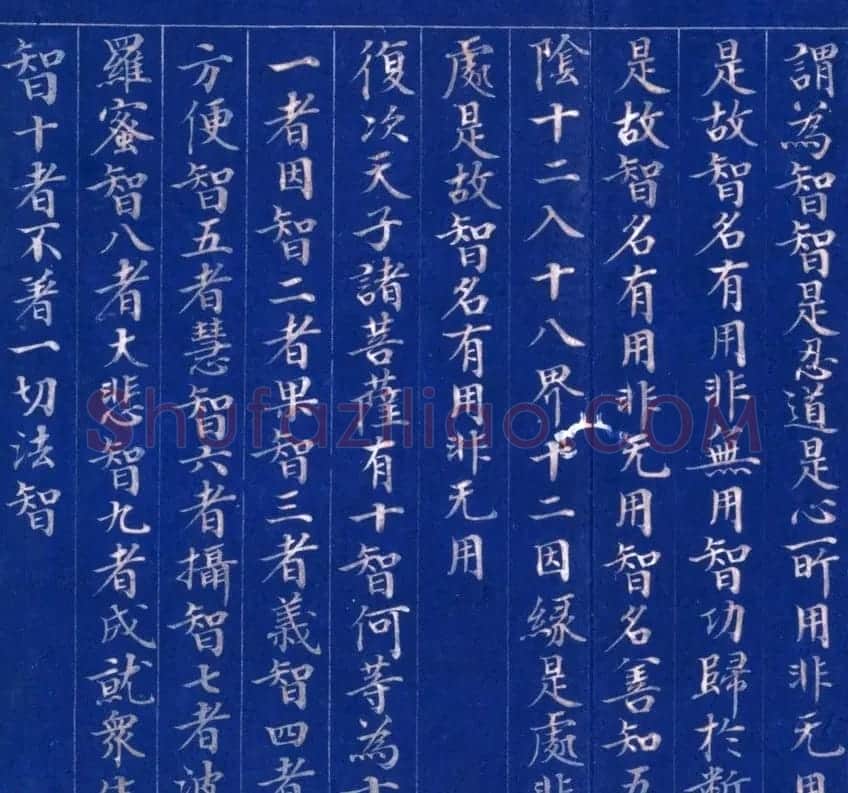 謂為智智是忍道是心所用非无用
是故智名有用非無用智功歸於断
是故智名有用非无用智名善知五
陰十二入十八界十二因縁是處非
處是故智名有用非无用
復次天子諸菩薩有十智何等為十
一者因智二者果智三者義智四者
方便智五者慧智六者攝智七者波
羅蜜智八者大悲智九者成就衆生
智十者不著一切法智
Shufaziliao.COM